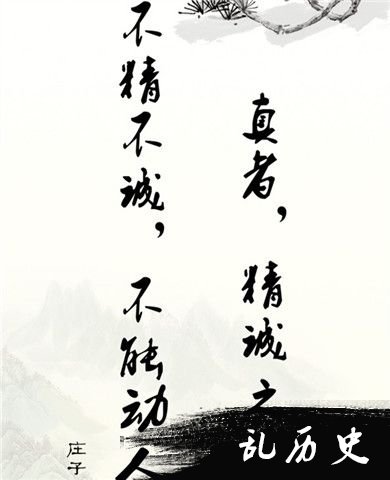 真者，精诚之
不精不诚，不能动人
庄子
乱历史